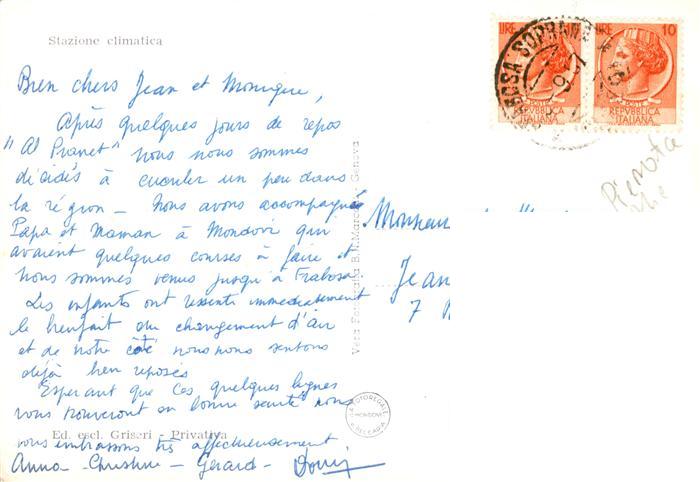 Stazione climatica
LIRE
LIRE 10
POSTE
REPVBBLICA
ITALIANA
POSTE
REPVBBLICA
ITALIANA
SOPRANA
Bien chers Jean et Monique,
Après quelques jours de repos
"Al Pranet" nous nous sommes
décidés à circuler un peu dans
la région - Nous avons accompagné
Papa et Maman à Mondovi qui
avaient quelques courses à faire et
nous sommes venus jusqu'à Frabosa
Les enfants ont ressenti immédiatement
le bienfait du changement d'air
et de notre côté nous nous sentons
déjà bien reposés
Espérant que ces quelques lignes
vous trouveront en bonne santé nous
vous embrassons très affectueusement
Anna-Christine - Gérard -
Ed. escl. Griseri - Privativa
Vera Fotografia B.N. Genova
FOTOREGALE
MONDOVI
Monsieur
Jean
7